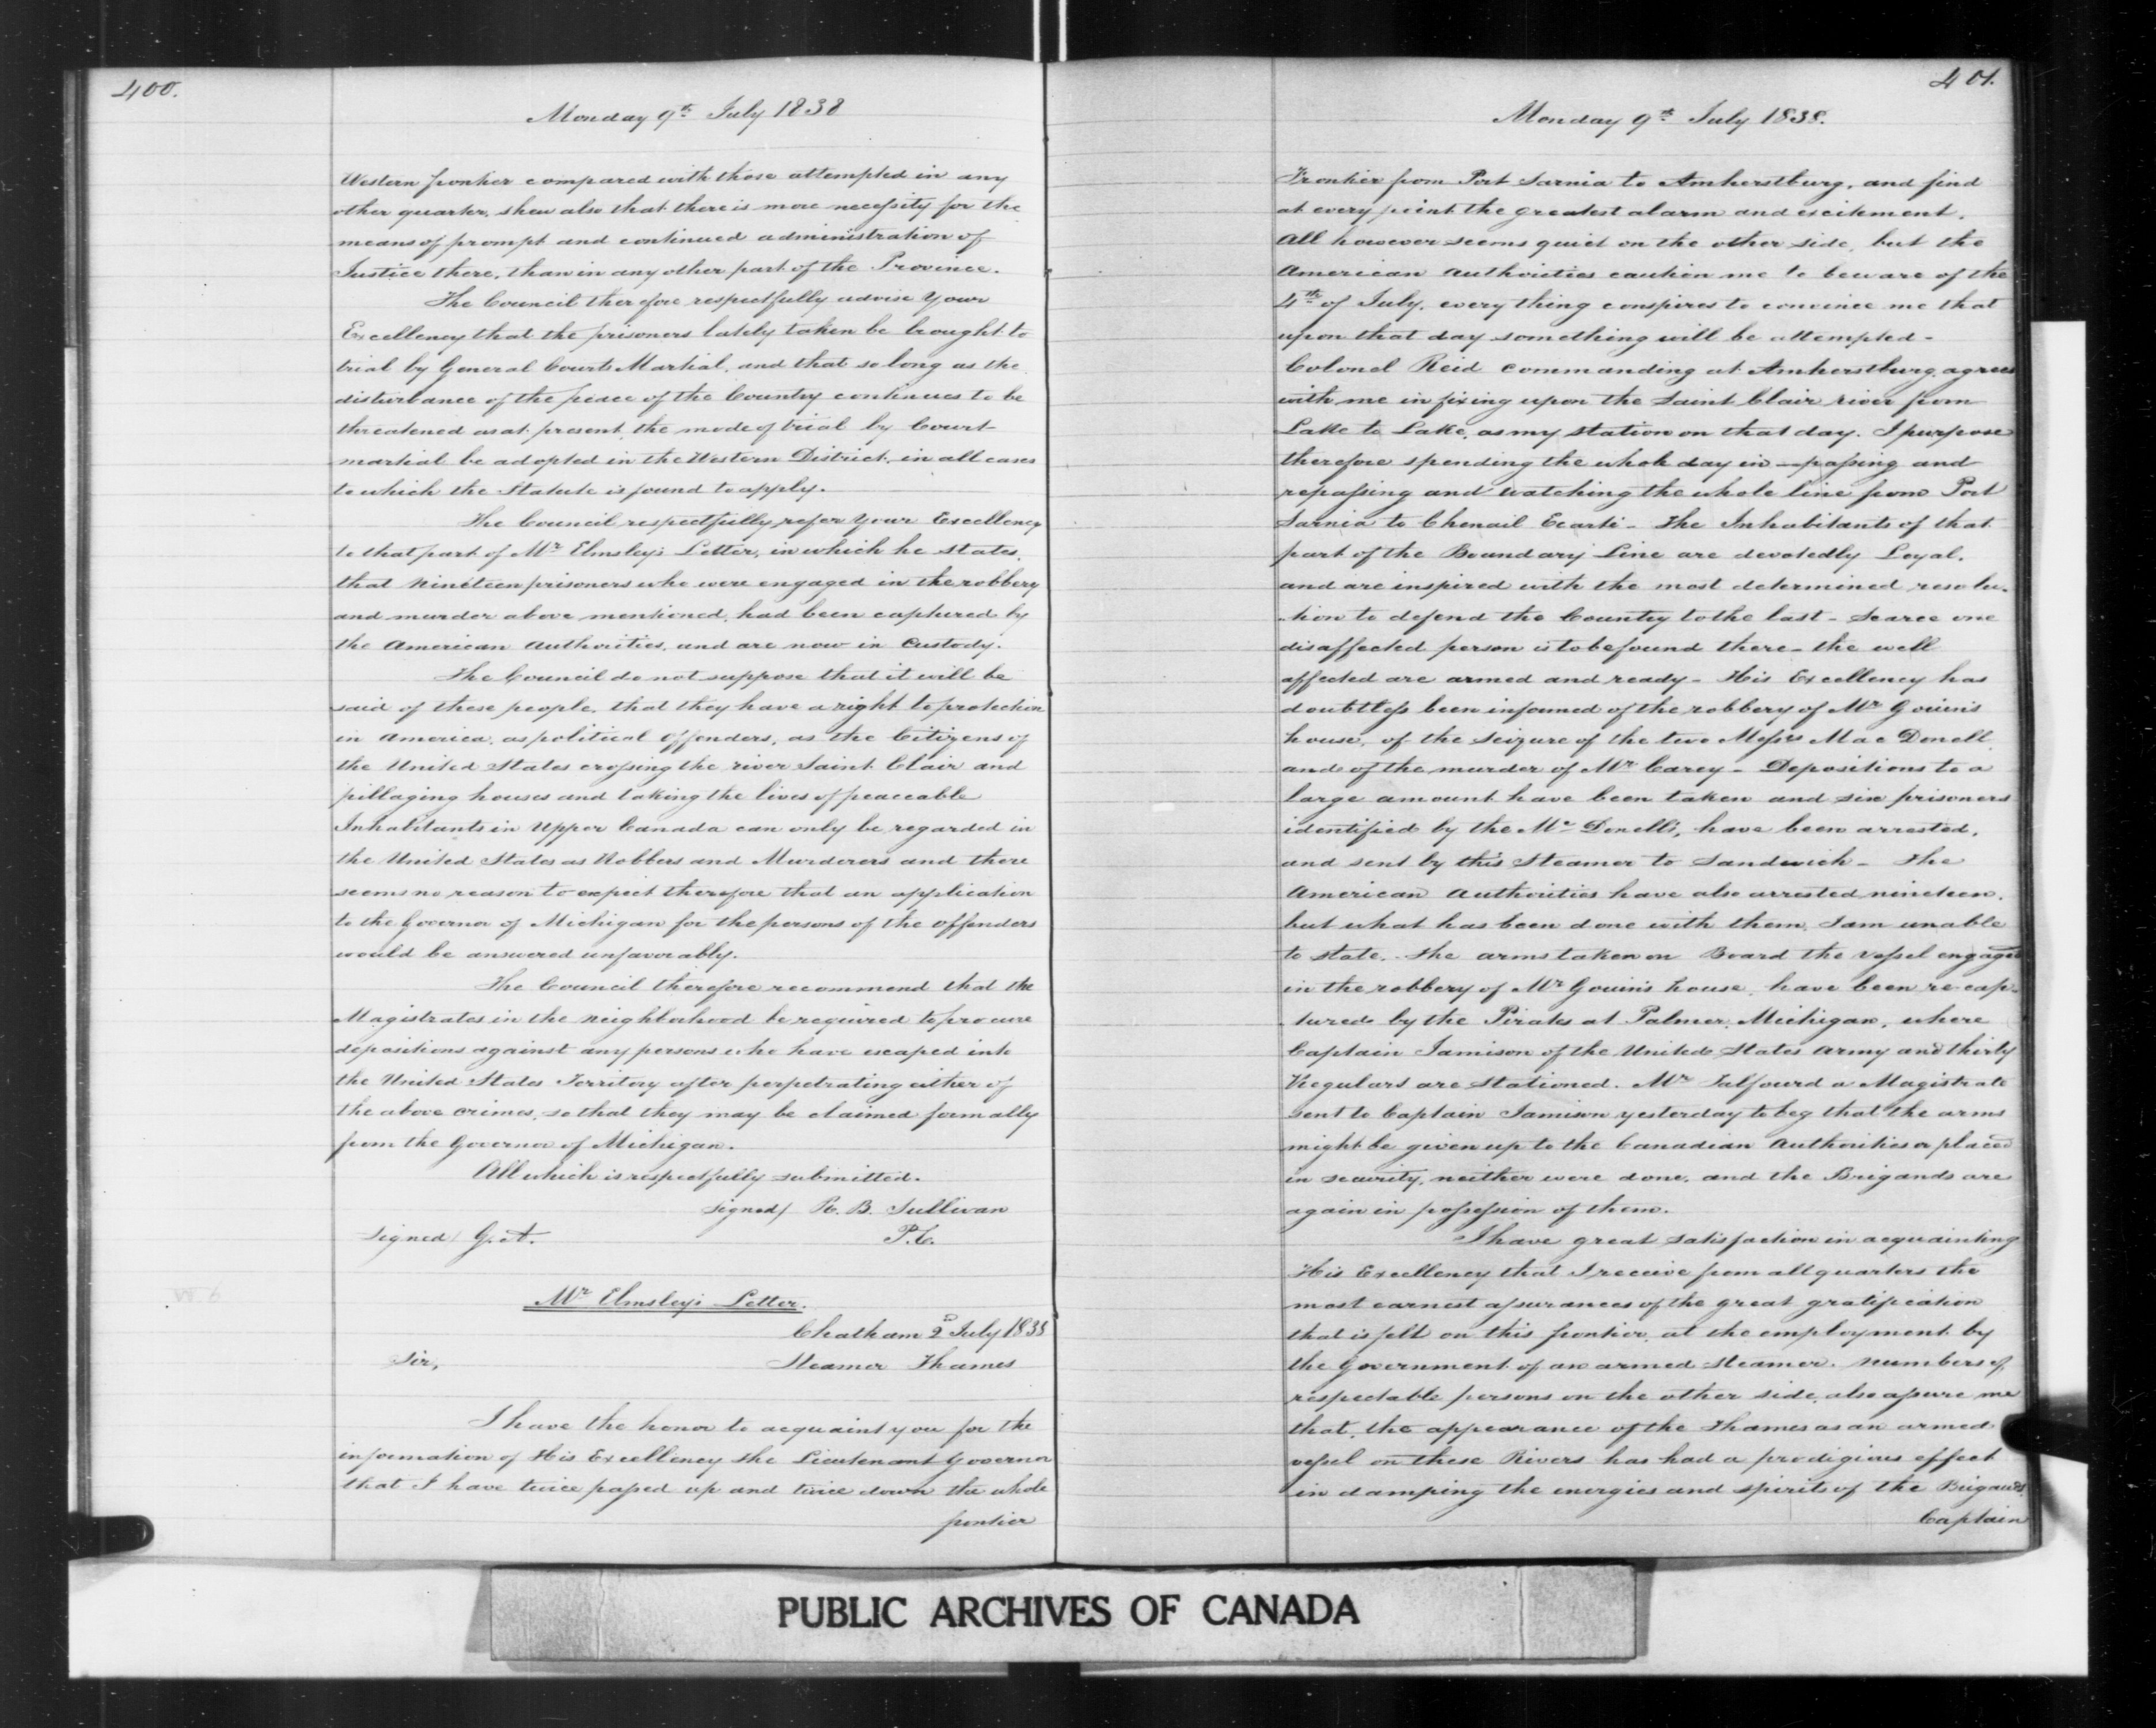 400.
Monday 9th July 1838
Western frontier compared with those attempted in any
other quarter, shew also that there is more necessity for the
means of prompt and continued administration of
Justice there, than in any other part of the Province.
The Council therefore respectfully advise Your
Excellency that the prisoners lately taken be brought to
trial by General Courts Martial, and that so long as the
disturbance of the peace of the Country continues to be
threatened as at present, the mode of trial by Court-
martial be adopted in the Western District, in all cases
to which the Statute is found to apply.
The Council respectfully refer Your Excellency
to that part of Mr Elmsley's Letter, in which he states,
that Nineteen prisoners who were engaged in the robbery
and murder above mentioned, had been captured by
the American Authorities, and are now in Custody.
The Council do not suppose that it will be
said of these people, that they have a right to protection
in America, as political Offenders, as the Citizens of
the United States crossing the river Saint Clair and
pillaging houses and taking the lives of peaceable
Inhabitants in Upper Canada can only be regarded in
the United States as Robbers and Murderers and there
seems no reason to expect therefore that an application
to the Governor of Michigan for the persons of the Offenders
would be answered unfavorably.
The Council therefore recommend that the
Magistrates in the Neighborhood be required to procure
depositions against any persons who have escaped into
the United States Territory after perpetrating either of
the above crimes, so that they may be claimed formally
from the Governor of Michigan.
All which is respectfully submitted.
signed/ R. B. Sullivan
Signed/ G. A. P.C.
Mr Elmsley's Letter.
Chatham 2d July 1838
Sir, Steamer Thames
I have the honor to acquaint you for the
information of His Excellency the Lieutenant Governor
that I have twice passed up and twice down the whole
frontier
401.
Monday 9th July 1838.
Frontier from Port Sarnia to Amherstburg, and find
at every point the greatest alarm and excitement.
All however seems quiet on the other side, but the
American Authorities caution me to beware of the
4th of July, every thing conspires to convince me that
upon that day something will be attempted -
Colonel Reid Commanding at Amherstburg, agrees
with me in fixing upon the Saint Clair river from
Lake to Lake, as my Station on that day. I purpose
therefore spending the whole day in passing and
repassing and watching the whole line from Port
Sarnia to Chenail Ecarté - The Inhabitants of that
part of the Boundary Line are devotedly Loyal,
and are inspired with the most determined resolu-
-tion to defend the Country to the last - Scarce one
disaffected person is to be found there - the well
affected are armed and ready - His Excellency has
doubtless been informed of the robbery of Mr Gouin's
house, of the Seizure of the two Messrs Mac Donell
and of the murder of Mr Carey - Depositions to a
large amount have been taken and six prisoners
identified by the Mc Donells, have been arrested,
and sent by this Steamer to Sandwich - The
American Authorities have also arrested nineteen,
but what has been done with them, I am unable
to state. The arms taken on Board the vessel engaged
in the robbery of Mr Gouin's house, have been re-cap-
-tured by the Pirates at Palmer, Michigan, where
Captain Jamison of the United States Army and thirty
Regulars are Stationed. Mr Talfourd a Magistrate
sent to Captain Jamison yesterday to beg that the arms
might be given up to the Canadian Authorities or placed
in security, neither were done, and the Brigands are
again in possession of them.
I have great satisfaction in acquainting
His Excellency that I receive from all quarters the
most earnest assurances of the great gratification
that is felt on this frontier, at the employment by
the Government of an armed steamer. Numbers of
respectable persons on the other side, also assure me
that, the appearance of the Thames as an armed
vessel on these Rivers has had a prodigious effect
in damping the energies and spirits of the Brigands.
Captain
PUBLIC ARCHIVES OF CANADA